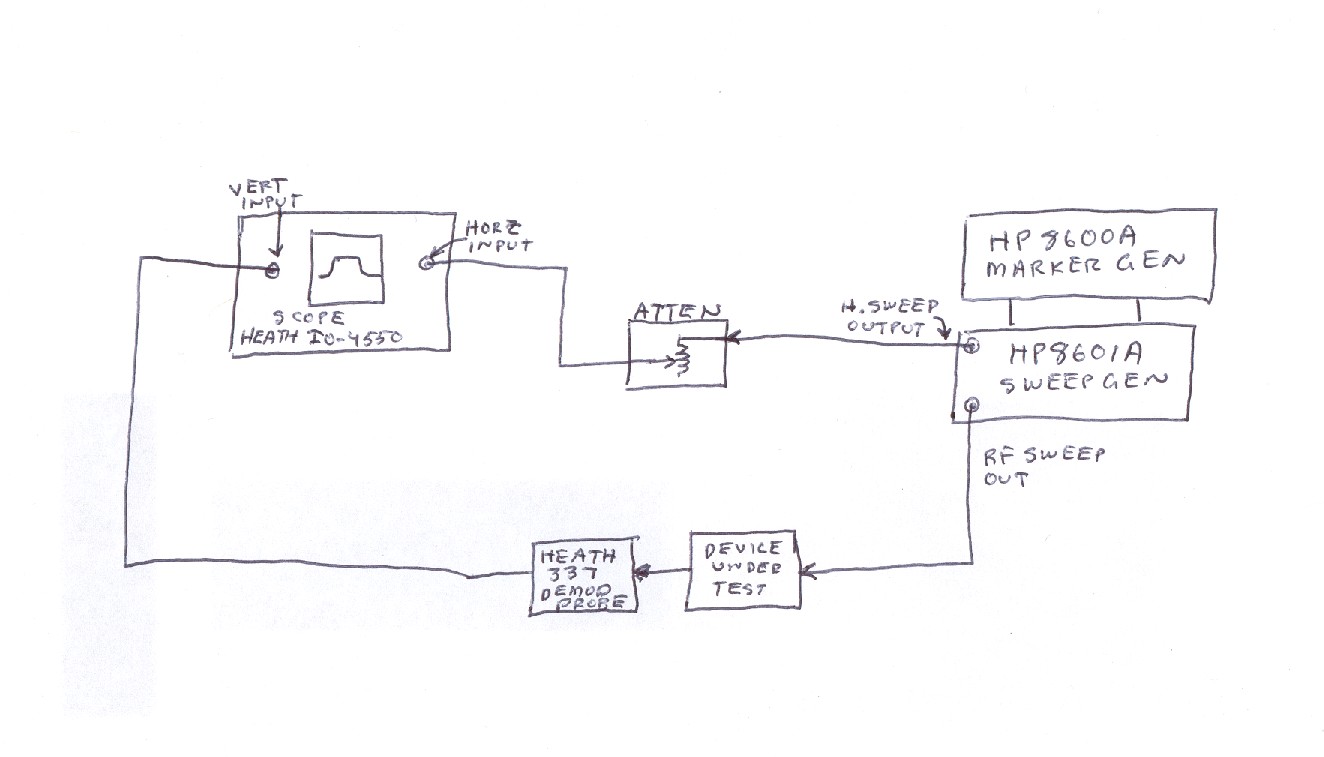 VERT
INPUT
HORZ
INPUT
SCOPE
HEATH IO-4550
ATTEN
H. SWEEP
OUTPUT
HP8600A
MARKER GEN
HP8601A
SWEEP GEN
RF SWEEP
OUT
HEATH
337
DEMOD
PROBE
DEVICE
UNDER
TEST